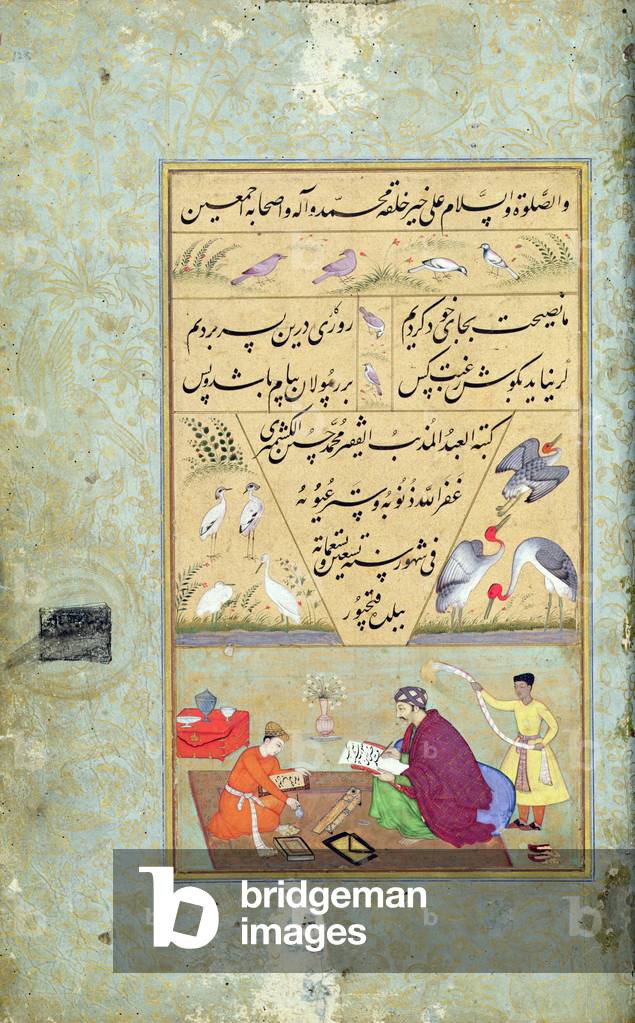 والصّلوة والسّلام علی خیر خلقه محمّد وآله واصحابه اجمعین
ما نصیحت بجای خود کردیم
روزکاری درین بسر بردیم
کر نیاید بکوش رغبت کس
بر رسولان پیام باشد و بس
کتبه العبد المذنب الفقیر محمد حسین الکشمیری
غفر الله ذنوبه وستر عیوبه
فی شهور سنه تسعین وتسعمائة
ببلده فتحپور
b bridgeman
images